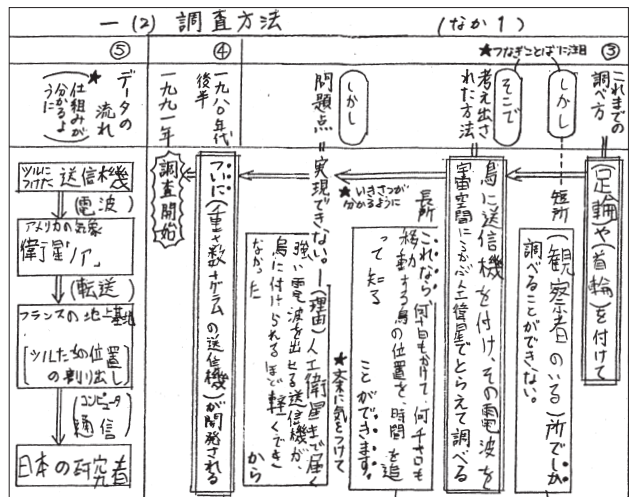 一 (2) 調査方法 (なか1)
③
これまでの
調べ方
(足輪)や(首輪)を付けて
★つなぎことばに注目
しかし
短所
(観察者のいる)所でしか
調べることができない。
そこで
考え出さ
れた方法
鳥に送信機を付け、その電波を
宇宙空間にうかぶ人工衛星でとらえて調べる
長所
これなら、何十日もかけて、何千キロも
移動する鳥の位置を、時間を追
って知る
ことができます。
★文末に気をつけて
しかし
問題点
実現できない。
★いきさつが
分かるように
(理由)人工衛星まで届く
強い電波を出せる送信機が、
鳥に付けられるほど軽くでき
なかった
から
④
一九八〇年代
後半
ついに(重さ数十グラムの送信機)が開発される
一九九一年
調査開始
⑤
データの
流れ
★
(仕組みが
分かるよ
うに)
ツルに
つけた 送信機
(電波)
アメリカの気象
衛星ノア
(転送)
フランスの地上基地
[ツルたちの位置
の割り出し]
(コンピュータ
通信)
日本の研究者